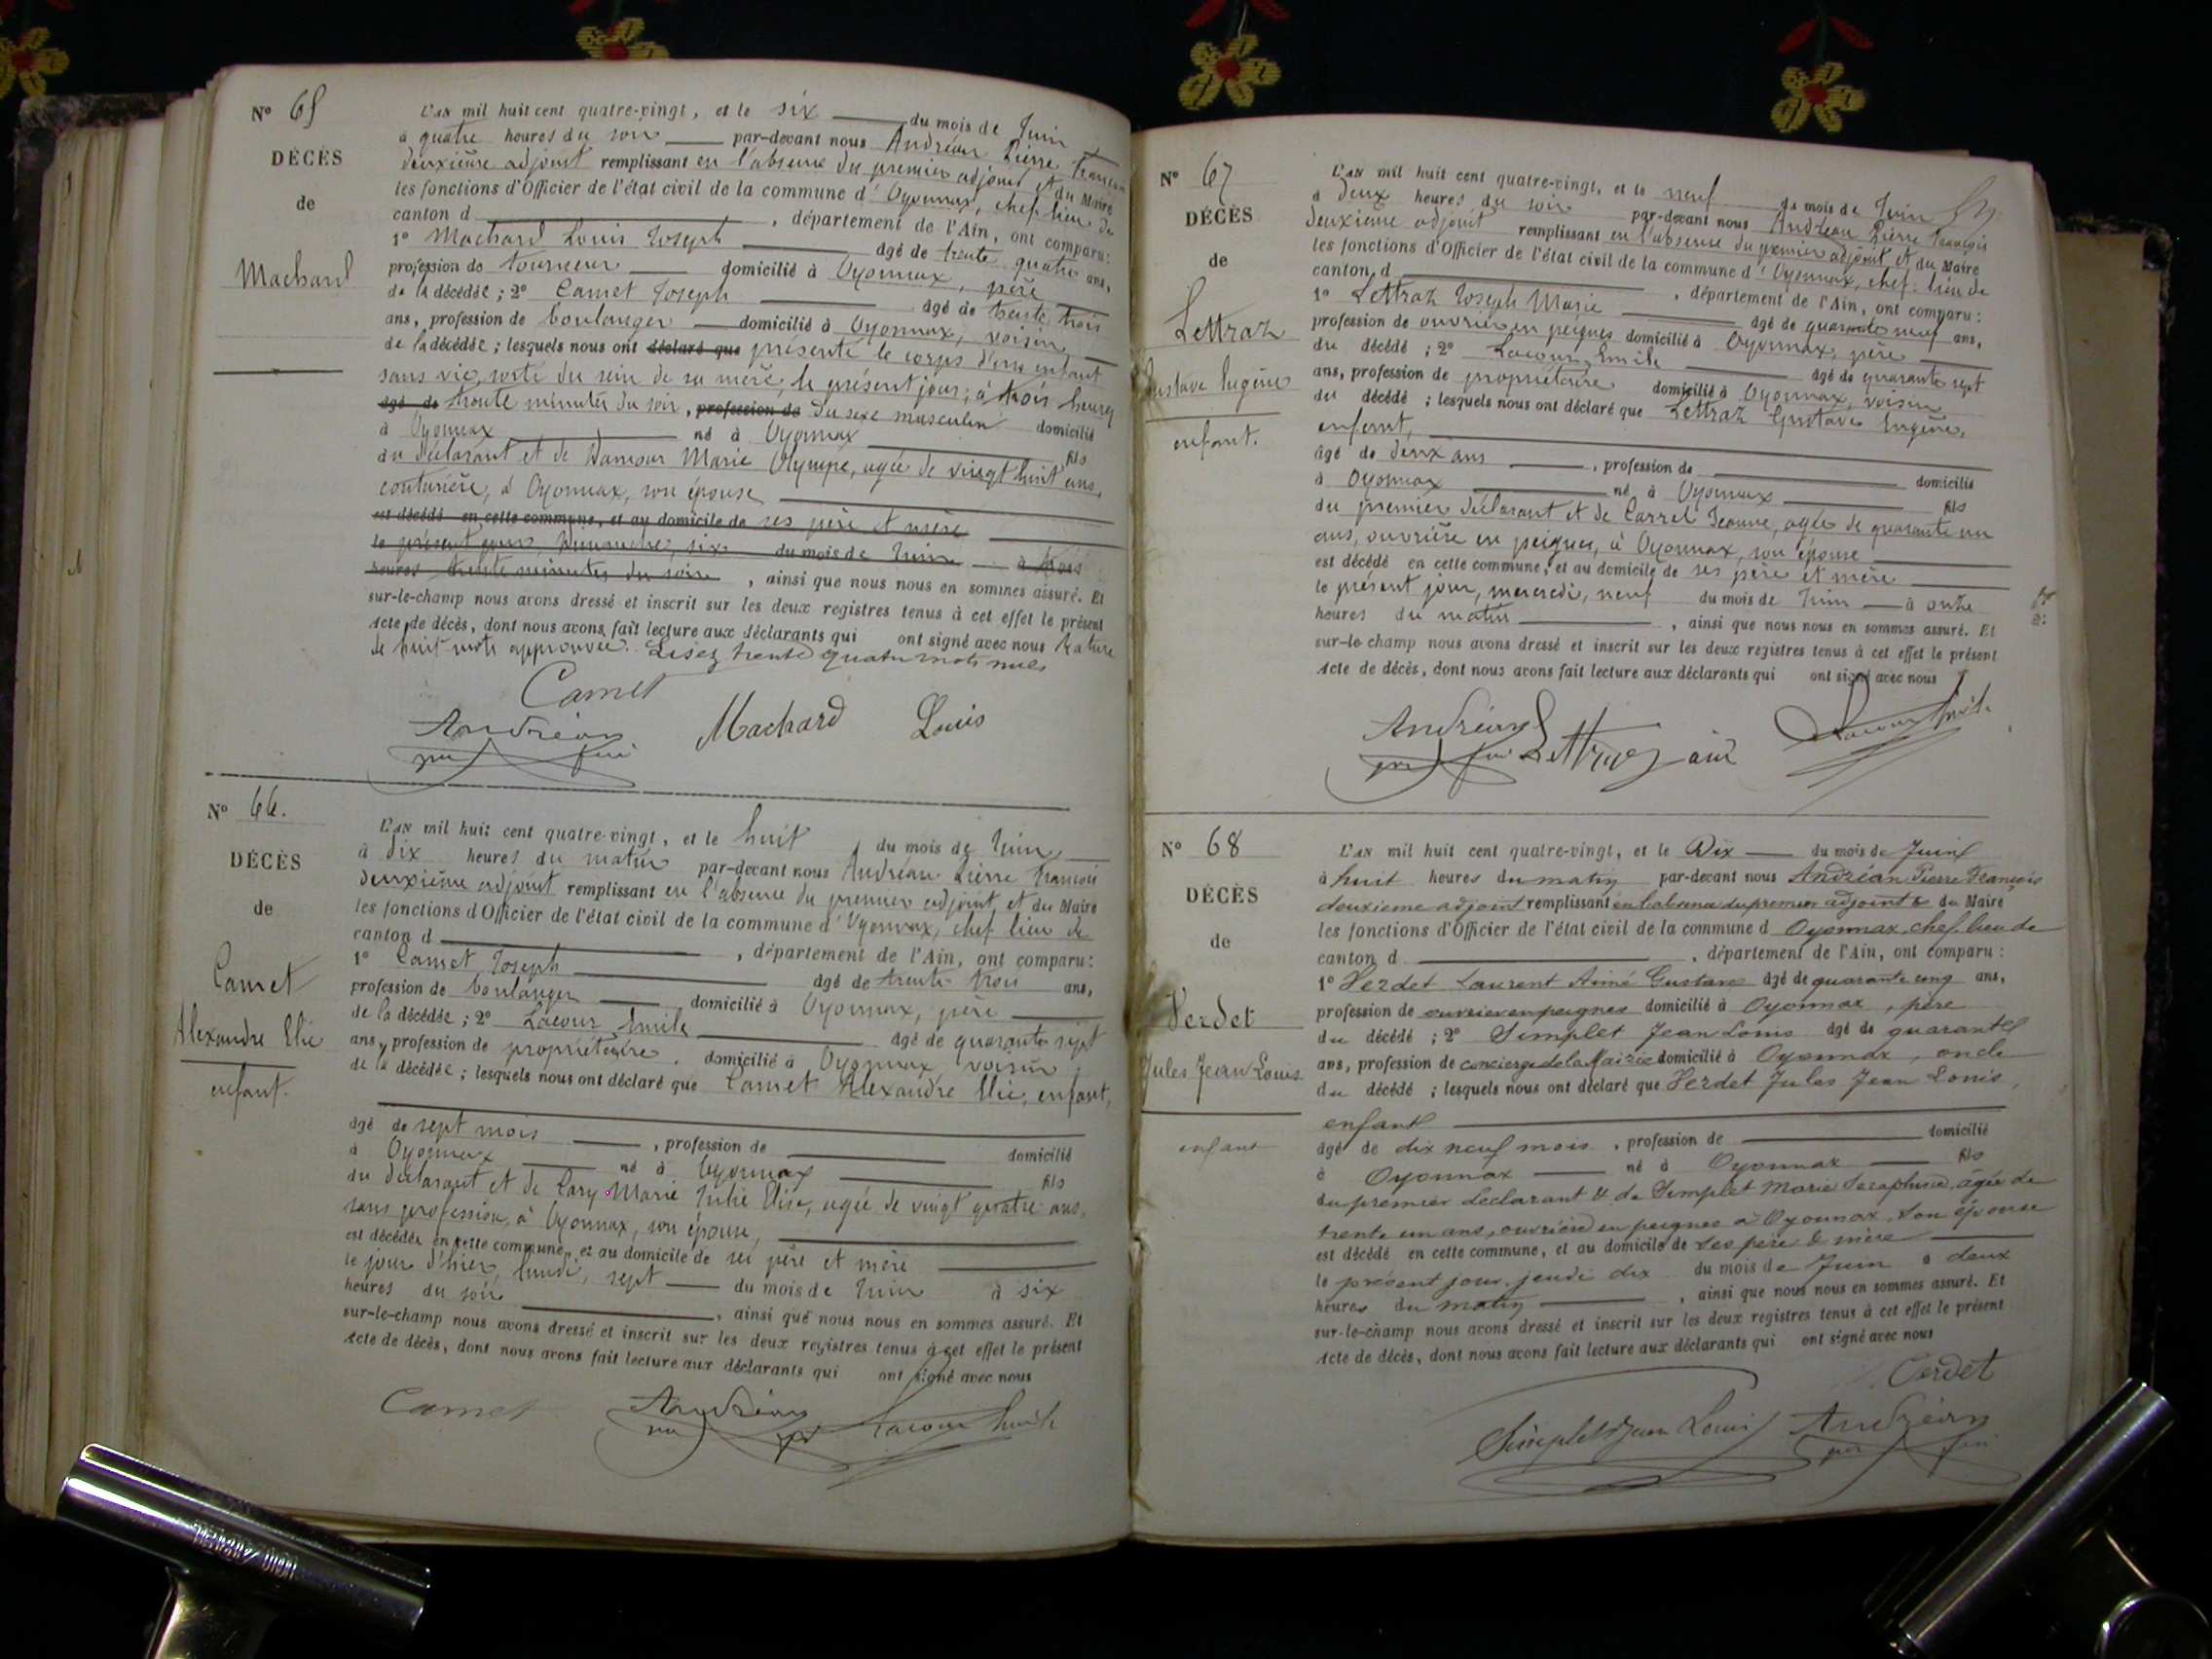 N° 65
DÉCÈS
de
Machard
L'AN mil huit cent quatre-vingt, et le six du mois de Juin
à quatre heures du soir par-devant nous Andréan Pierre François
deuxième adjoint remplissant en l'absence du premier adjoint et du Maire
les fonctions d'Officier de l'état civil de la commune d'Oyonnax, chef lieu de
canton d , département de l'Ain, ont comparu:
1° Machard Louis Joseph âgé de trente quatre ans,
profession de tourneur domicilié à Oyonnax, père
de la décédée; 2° Carnet Joseph âgé de trente trois
ans, profession de boulanger domicilié à Oyonnax, voisin
de la décédée; lesquels nous ont déclaré que présenté le corps d'un enfant
sans vie, sorti du sein de sa mère, le présent jour, à trois heures
âgé de trente minutes du soir, profession de du sexe masculin domicilié
à Oyonnax né à Oyonnax fils
du déclarant et de Marie Olympe, agée de vingt huit ans,
couturière, à Oyonnax, son épouse
est décédé en cette commune, et au domicile de ses père et mère
le présent jour, Dimanche, six du mois de Juin à trois
heures trente minutes du soir , ainsi que nous nous en sommes assuré. Et
sur-le-champ nous avons dressé et inscrit sur les deux registres tenus à cet effet le présent
acte de décès, dont nous avons fait lecture aux déclarants qui ont signé avec nous Rature
de huit mots approuvée. Lisez trente quatre mots nuls
Carnet
Andréan Machard Louis
N° 66.
DÉCÈS
de
Carnet
Alexandre Elie
enfant.
L'AN mil huit cent quatre-vingt, et le huit du mois de Juin
à dix heures du matin par-devant nous Andréan Pierre François
deuxième adjoint remplissant en l'absence du premier adjoint et du Maire
les fonctions d'Officier de l'état civil de la commune d'Oyonnax, chef lieu de
canton d , département de l'Ain, ont comparu:
1° Carnet Joseph âgé de trente trois ans,
profession de boulanger domicilié à Oyonnax, père
de la décédée; 2° Lacour Emile âgé de quarante sept
ans, profession de propriétaire. domicilié à Oyonnax, voisin
de la décédée; lesquels nous ont déclaré que Carnet Alexandre Elie, enfant,
âgé de sept mois , profession de domicilié
à Oyonnax né à Oyonnax fils
du déclarant et de Marie Julie Elise, agée de vingt quatre ans,
sans profession, à Oyonnax, son épouse,
est décédée en cette commune, et au domicile de ses père et mère
le jour d'hier, lundi, sept du mois de Juin à six
heures du soir , ainsi que nous nous en sommes assuré. Et
sur-le-champ nous avons dressé et inscrit sur les deux registres tenus à cet effet le présent
acte de décès, dont nous avons fait lecture aux déclarants qui ont signé avec nous
Carnet Andréan Lacour Emile
N° 67
DÉCÈS
de
Lettraz
Gustave Eugène
enfant.
L'AN mil huit cent quatre-vingt, et le neuf du mois de Juin
à deux heures du soir par-devant nous Andréan Pierre François
deuxième adjoint remplissant en l'absence du premier adjoint et du Maire
les fonctions d'Officier de l'état civil de la commune d'Oyonnax, chef-lieu de
canton d , département de l'Ain, ont comparu:
1° Lettraz Joseph Marie âgé de quarante neuf ans,
profession de ouvrier en peignes domicilié à Oyonnax, père
du décédé; 2° Lacour Emile âgé de quarante sept
ans, profession de propriétaire domicilié à Oyonnax, voisin
du décédé; lesquels nous ont déclaré que Lettraz Gustave Eugène,
enfant,
âgé de deux ans , profession de domicilié
à Oyonnax né à Oyonnax fils
du premier déclarant et de Carrel Jeanne, agée de quarante un
ans, ouvrière en peignes, à Oyonnax, son épouse
est décédé en cette commune, et au domicile de ses père et mère
le présent jour, mercredi, neuf du mois de Juin à onze
heures du matin , ainsi que nous nous en sommes assuré. Et
sur-le champ nous avons dressé et inscrit sur les deux registres tenus à cet effet le présent
acte de décès, dont nous avons fait lecture aux déclarants qui ont signé avec nous
Andréan Lettraz Lacour Emile
N° 68
DÉCÈS
de
Verdet
Jules Jean Louis
enfant
L'AN mil huit cent quatre-vingt, et le Dix du mois de Juin
à huit heures du matin par-devant nous Andréan Pierre François
deuxieme adjoint remplissant en l'absence du premier adjoint & du Maire
les fonctions d'Officier de l'état civil de la commune d Oyonnax, chef lieu de
canton d , département de l'Ain, ont comparu:
1° Verdet Laurent Aimé Gustave âgé de quarante cinq ans,
profession de ouvrier en peignes domicilié à Oyonnax, père
du décédé; 2° Simplet Jean Louis âgé de quarante
ans, profession de concierge de la Mairie domicilié à Oyonnax, oncle
du décédé; lesquels nous ont déclaré que Verdet Jules Jean Louis,
enfant
âgé de dix neuf mois, profession de domicilié
à Oyonnax né à Oyonnax fils
du premier declarant & de Simplet Marie Seraphine, âgée de
trente un ans, ouvrière en peignes à Oyonnax, son épouse
est décédé en cette commune, et au domicile de ses père & mère
le présent jour, jeudi dix du mois de Juin à deux
heures du matin , ainsi que nous nous en sommes assuré. Et
sur-le-champ nous avons dressé et inscrit sur les deux registres tenus à cet effet le présent
acte de décès, dont nous avons fait lecture aux déclarants qui ont signé avec nous
Verdet
Simplet Jean Louis Andréan